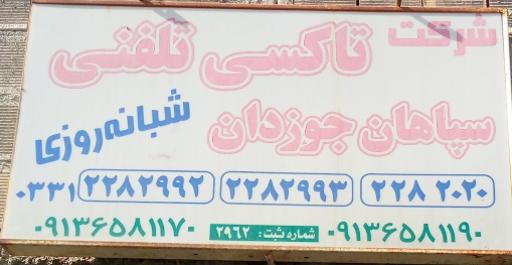 شرکت تاکسی تلفنی
سپاهان جوزدان شبانه روزی
۲۲۸ ۲۰۲۰ ۲۲۸۲۹۹۳ ۲۲۸۲۹۹۲ ۰۳۳۱
۰۹۱۳۶۵۸۱۱۹۰ شماره ثبت: ۲۹۶۲ ۰۹۱۳۶۵۸۱۱۷۰